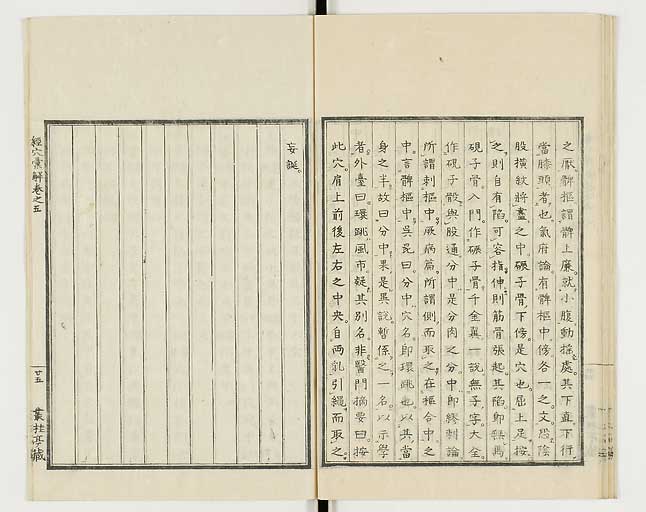 之厥髀樞謂髀上廉就小腹動搖處其下直下行
當膝頭者也氣府論有髀樞中傍各一之文恐陰
股橫紋將盡之中碾子骨下傍是穴也屈上足按
之則自有陷可容指伸則筋骨張起其陷即
硯子骨入門作碾子骨千金翼一說無子字大全
作硯子骰與股通分中是分肉之分中即繆刺論
所謂刺樞中厥病篇所謂側而取之在樞合中之
中言髀樞中吳昆曰分中穴名即環跳也以其當
身之半故曰分中果是異說暫係之一名以示學
者外臺曰環跳風市疑其別名非醫門摘要曰按
此穴肩上前後左右之中央自両乳引繩而取之
妄誕
經穴彙解卷之五
廿五
叢桂亭藏